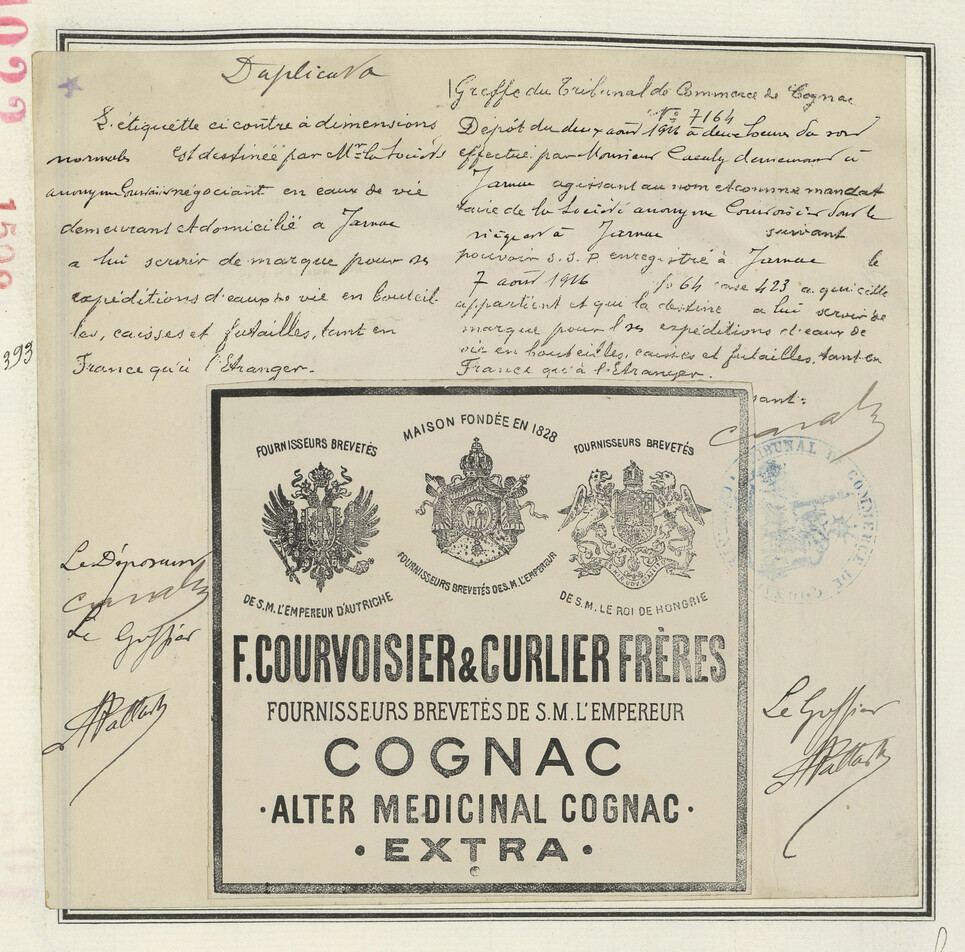 Duplicata
L'étiquette ci contre à dimensions
normales est destinée par Mr la Société
anonyme Courvoisier négociant en eaux de vie
demeurant et domicilié a Jarnac
a lui servir de marque pour ses
expéditions d'eaux de vie en bouteil
les, caisses et futailles, tant en
France qu'à l'Etranger.
393
Greffe du Tribunal de Commerce de Cognac
No 7164
Dépôt du deux août 1926 à deux heures du soir
effectué par Monsieur demeurant à
Jarnac agissant au nom et comme mandat
taire de la Société anonyme Courvoisier dont le
siège est à Jarnac suivant
pouvoir S.S.P enregistré à Jarnac le
7 août 1926 fo 64 case 423 a qui elle
appartient et qui la destine a lui servir de
marque pour ses expéditions d'eaux de
vie en bouteilles, caisses et futailles, tant en
France qu'à l'Etranger.
Le Déposant
Le Greffier
MAISON FONDÉE EN 1828
FOURNISSEURS BREVETÉS
FOURNISSEURS BREVETÉS
FOURNISSEURS BREVETÉS DE S. M. L'EMPEREUR
DE S.M. L'EMPEREUR D'AUTRICHE
DE S.M. LE ROI DE HONGRIE
F. COURVOISIER & CURLIER FRÈRES
FOURNISSEURS BREVETÉS DE S.M. L'EMPEREUR
COGNAC
·ALTER MEDICINAL COGNAC·
• EXTRA •
TRIBUNAL DE COMMERCE DE COGNAC
Le Greffier